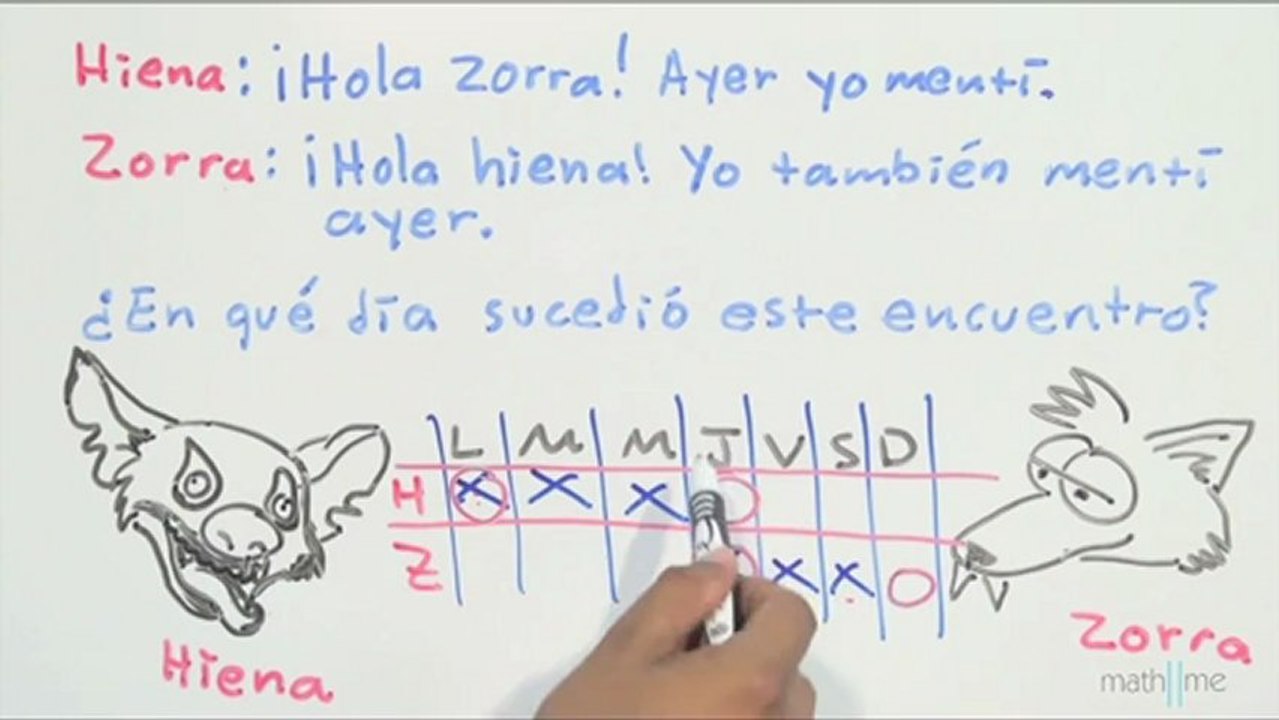 Hiena: ¡Hola zorra! Ayer yo mentí.
Zorra: ¡Hola hiena! Yo también mentí
ayer.
¿En qué día sucedió este encuentro?
L M M J V S D
H X X X
Z X X
Hiena
Zorra
math||me